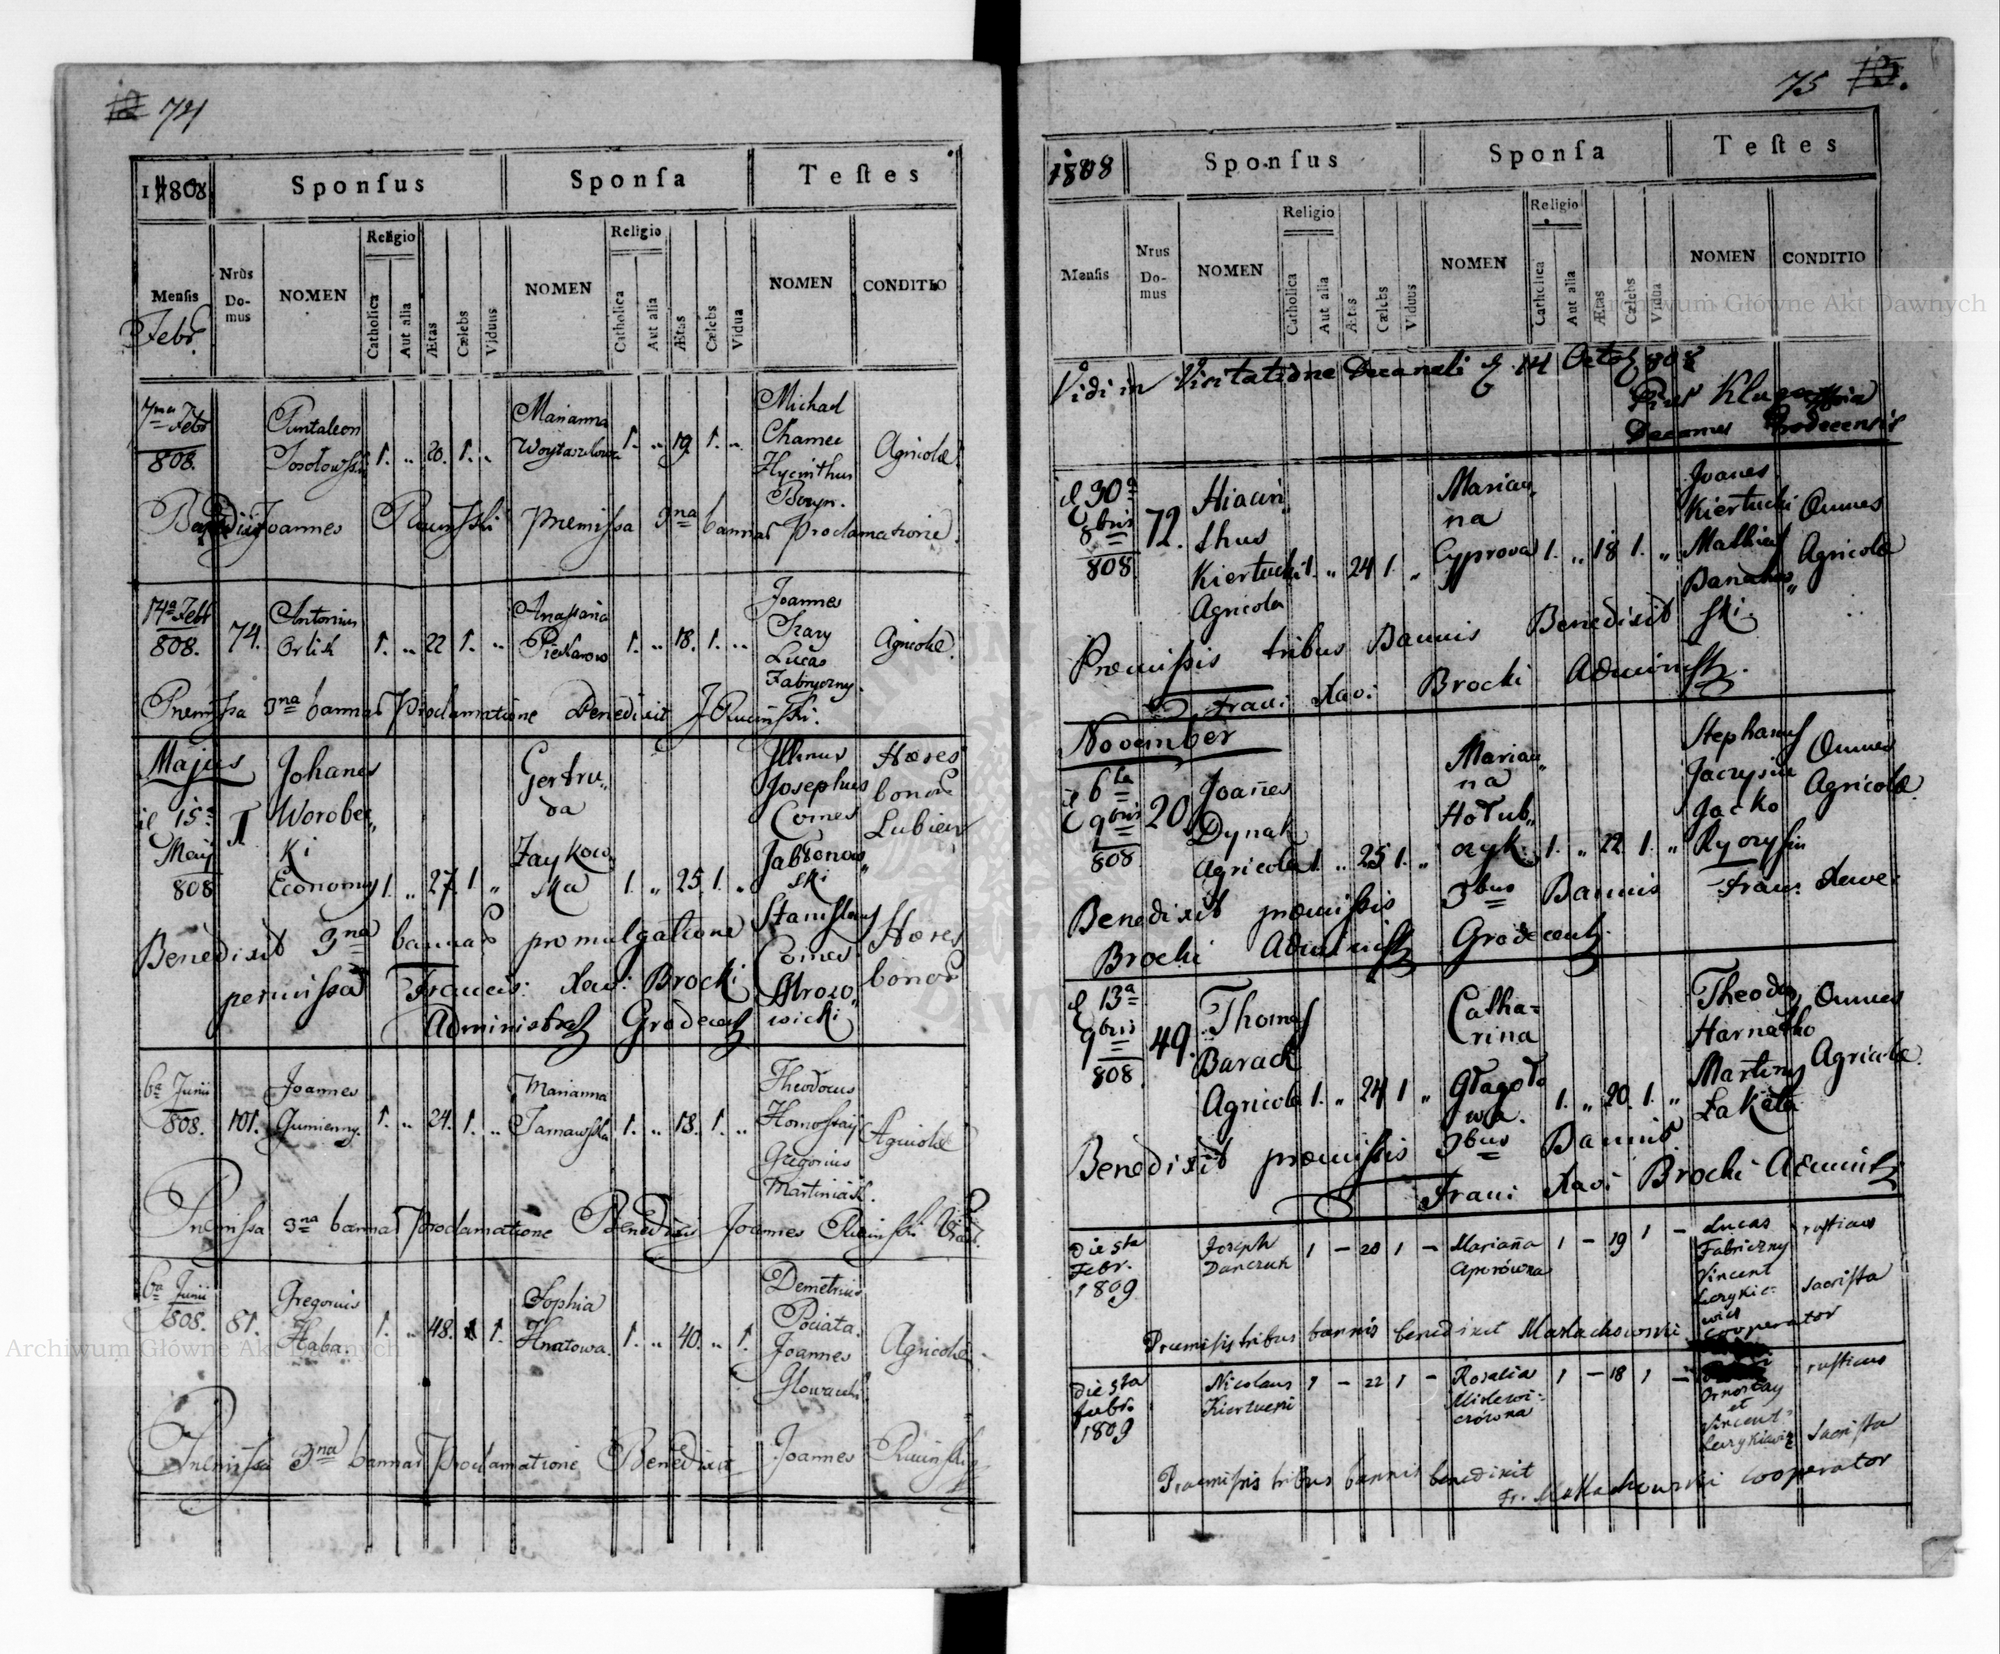 74
1808.
Sponſus
Sponſa
Teſtes
Menſis
Nrus Do-mus
NOMEN
Religio
Catholica
Aut alia
Ætas
Cælebs
Viduus
NOMEN
Religio
Catholica
Aut alia
Ætas
Cælebs
Vidua
NOMEN
CONDITIO
Febr.
7ma Febr
808.
Pantaleon
1. „ 20. 1. „
Marianna
1. „ 19. 1. „
Michael
Chamec
Hycinthus
Agricolæ
Joannes Ruciński premissa 3na bannor Proclamatione.
14a Febr
808.
74.
Antonius
Orlik
1. „ 22 1. „
Anastasia
1. „ 18. 1. „
Joannes
Szary
Lucas
Fabryczny.
Agricolæ.
Premissa 3na bannor Proclamatione Benedixit J Ruciński.
Majus
15a
Maij
808
1
Johanes
Worobec„
ki
Economus
1. „ 27. 1. „
Gertru„
da
Zaykow„
ska
1. „ 25. 1. „
Illmus
Josephus
Comes
Jabłonow„
ski
Stanislaus
Comes
wicki
Hæres
bonor
Lubien
Hæres
bonor
Benedixit 3na bannor promulgatione
permissa Francis: Xav: Brocki
Administrat Grodecens
6a Junii
808.
101.
Joannes
Gumienny.
1. „ 24. 1. „
Marianna
Tarnawska
1. „ 18. 1. „
Theodorus
Gregorius
Agricolæ
Premissa 3na bannor Proclamatione Benedixit Joannes Ruciński
6a Junii
808.
81.
Gregorius
Haba.
1. „ 48. 1.
Sophia
Hnatowa.
1. „ 40. „ 1.
Demetrius
Pociata.
Joannes
Głowacki.
Agricolæ.
Premissa 3na bannor Proclamatione Benedixit Joannes Ruciński
75
1808
Sponſus
Sponſa
Teſtes
Menſis
Nrus Do-mus
NOMEN
Religio
Catholica
Aut alia
Ætas
Cælebs
Viduus
NOMEN
Religio
Catholica
Aut alia
Ætas
Cælebs
Vidua
NOMEN
CONDITIO
Vidi in Visitatione Decanali 14 Octob 808
Decanus Grodecensis
30a
8bris
808
72.
Hiacin„
thus
Kiertucki
Agricola
1. „ 24 1. „
Marian„
na
Cyprova
1. „ 18 1. „
Joanes
Kiertucki
Mathias
Banahow„
ski
Omnes
Agricolæ
Præmissis tribus Bannis Benedixit
Franc Xav: Brocki Administ.
November
6ta
9bris
808
20.
Joañes
Dynak
Agricola
1. „ 25 1. „
Marian„
na
Hołub„
czyk.
1. „ 22. 1. „
Stephanus
Jacyszin
Jacko
Omnes
Agricolæ.
Benedixit præmissis 3bus Bannis Franc. Xave:
Brocki Administ Grodecens.
13a
9bris
808
49.
Thomas
Barack
Agricola
1. „ 24 1 „
Catha-
rina
Głagoło
wa.
1. „ 20. 1. „
Theodor
Harnatko
Martinus
Łakota
Omnes
Agricolæ
Benedixit præmissis 3bus Bannis
Franc Xav: Brocki Administ
Die 5ta
Febr.
1809
Joseph
Danczuk
1 – 20 1 –
Mariaña
1 – 19 1 –
Lucas
Fabriczny
Vincent
rusticus
sacrista
Præmissis tribus bannis benedixit Małachowski Cooperator
Die 5ta
Febr.
1809
Nicolaus
Kiertucki
1 – 22 1 –
Rosalia
1 – 18 1 –
et
Vincent
rusticus
sacrista
Præmissis tribus bannis benedixit
Fr. Małachowski Cooperator
Archiwum Główne Akt Dawnych
Archiwum Główne Akt Dawnych